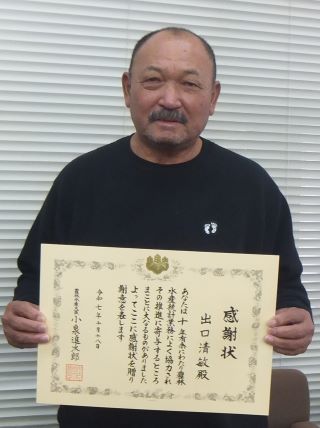 感謝状
出口清敏殿
あなたは十年有余にわたり農林
水産統計業務によく協力され
その推進に寄与するところ
まことに大なるものがありました
よってここに感謝状を贈り
謝意を表します
令和七年十月十八日
農林水産大臣 小泉進次郎